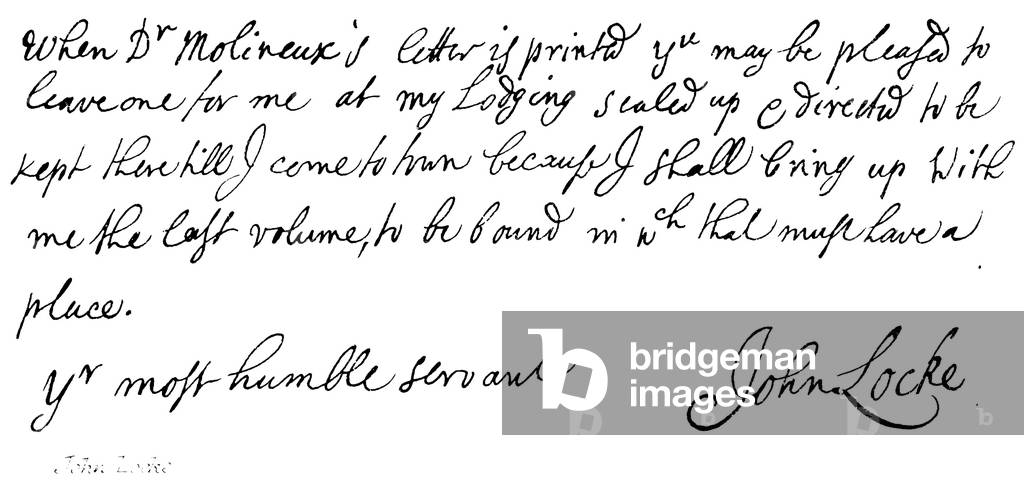 When Dr Molineux's letter is printed yu may be pleased to
leave one for me at my Lodging sealed up & directed to be
kept there till I come to town because I shall bring up with
me the last volume, to be bound in wch that must have a
place.
Yr most humble servant
John Locke
bridgeman
images
John Locke